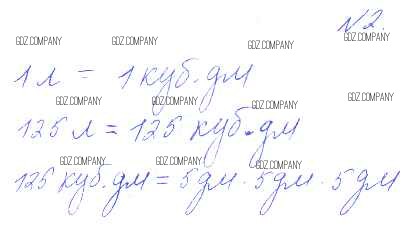 №2.
GDZ.COMPANY GDZ.COMPANY GDZ.COMPANY GDZ.COMPANY
1 л = 1 куб. дм
GDZ.COMPANY GDZ.COMPANY GDZ.COMPANY GDZ.COMPANY
125 л = 125 куб. дм
GDZ.COMPANY GDZ.COMPANY GDZ.COMPANY
125 куб. дм = 5 дм · 5 дм · 5 дм